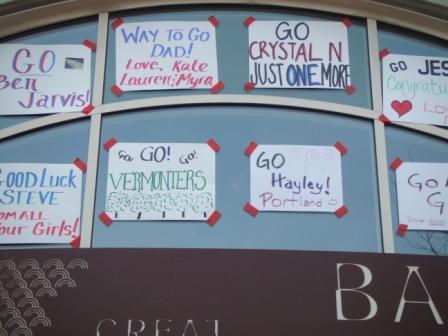 GO
Ben
Jarvis!
WAY TO GO
DAD!
Love, Kate
Lauren, Myra
GO
CRYSTAL N
JUST ONE MORE
GO JES
Congratu
Lo
GOOD Luck
STEVE
FROM ALL
Your Girls!
GO! GO! GO!
VERMONTERS
GO
Hayley!
Portland
GO
G
BA
GREAT